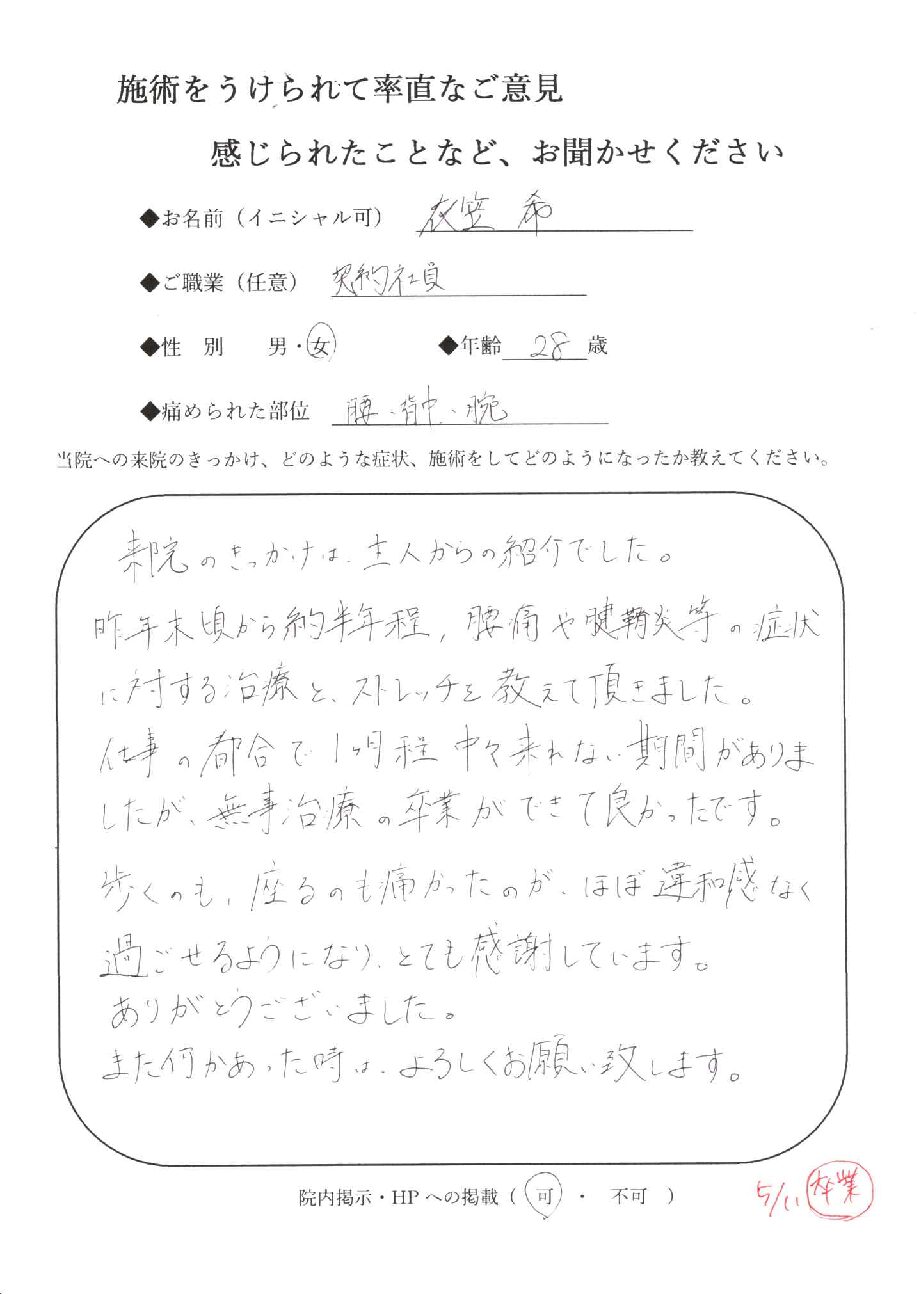 施術をうけられて率直なご意見
感じられたことなど、お聞かせください
◆お名前（イニシャル可） 衣笠 希
◆ご職業（任意） 契約社員
◆性 別 男・女 ◆年齢 28 歳
◆痛められた部位 腰・背中・腕
当院への来院のきっかけ、どのような症状、施術をしてどのようになったか教えてください。
来院のきっかけは、主人からの紹介でした。
昨年末頃から約半年程，腰痛や腱鞘炎等の症状
に対する治療と、ストレッチを教えて頂きました。
仕事の都合で1ヶ月程中々来れない期間がありま
したが、無事治療の卒業ができて良かったです。
歩くのも，座るのも痛かったのが、ほぼ違和感なく
過ごせるようになり、とても感謝しています。
ありがとうございました。
また何かあった時は、よろしくお願い致します。
院内掲示・HPへの掲載（ 可 ・ 不可 ）
5/11 卒業